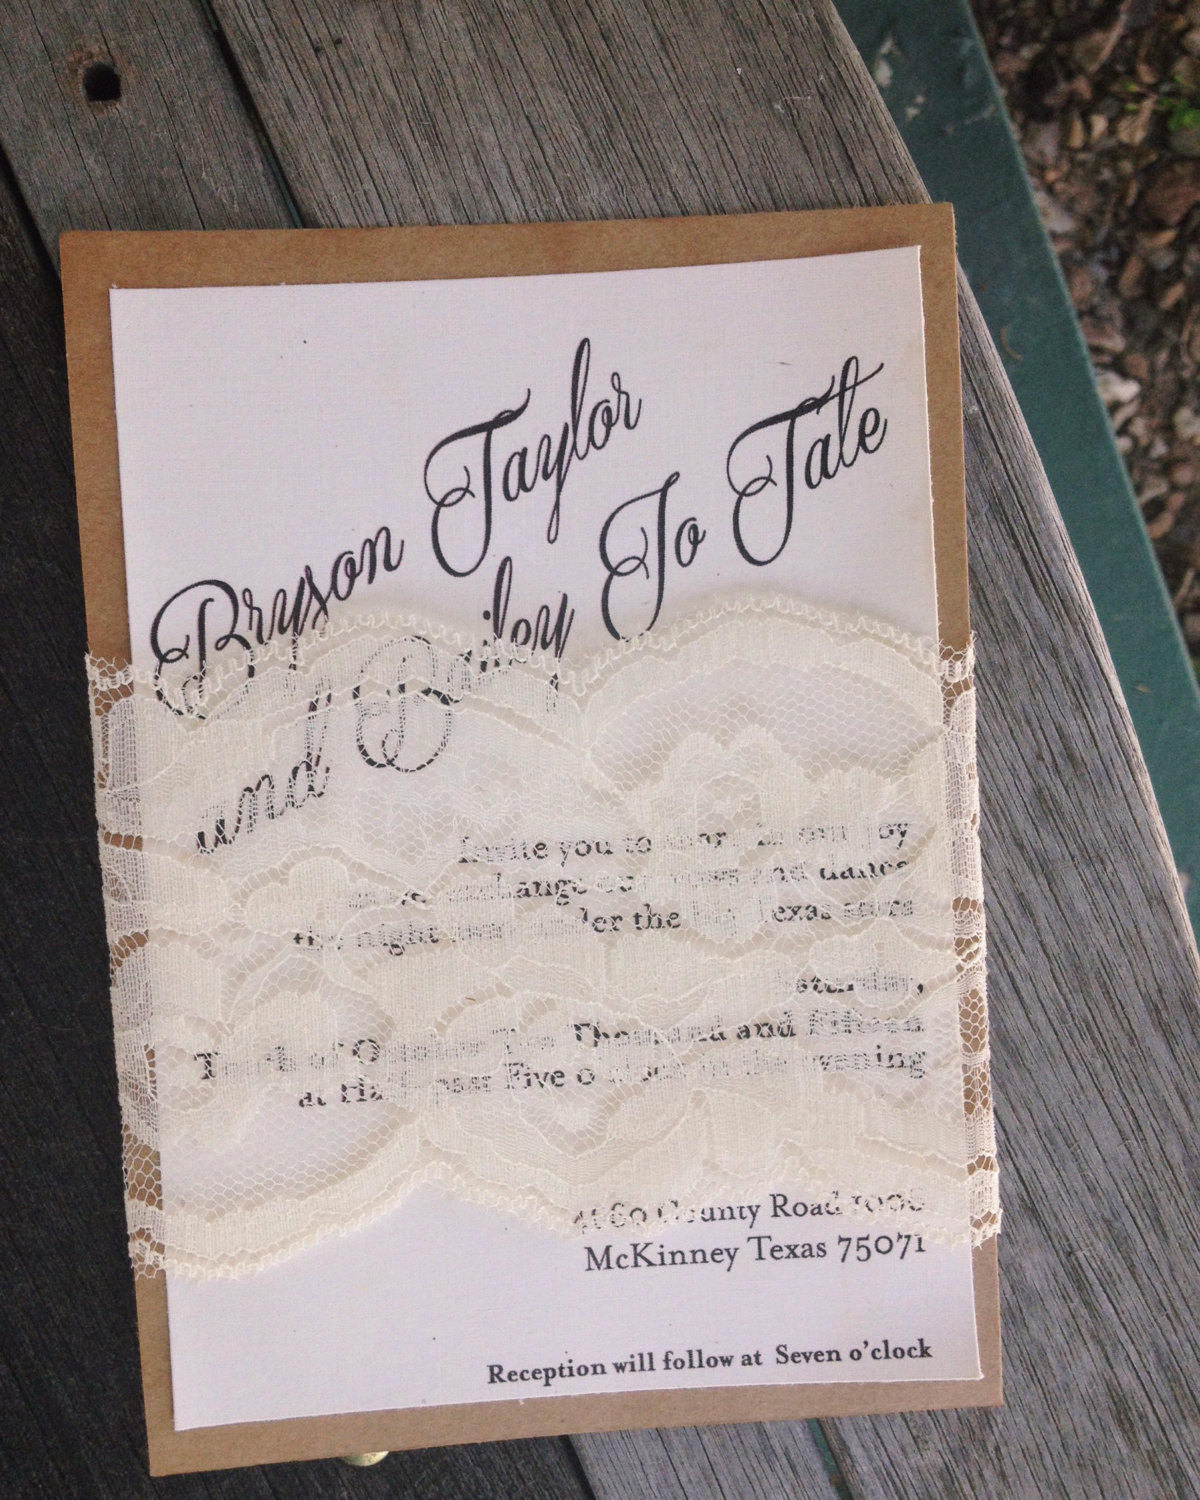 Bryson Taylor
and Bailey Jo Tate
Invite you to share in our joy
exchange our vows and dance
the night under the Texas stars
Saturday,
of October Two Thousand and Fifteen
at Half past Five o'clock in the evening
County Road
McKinney Texas 75071
Reception will follow at Seven o'clock